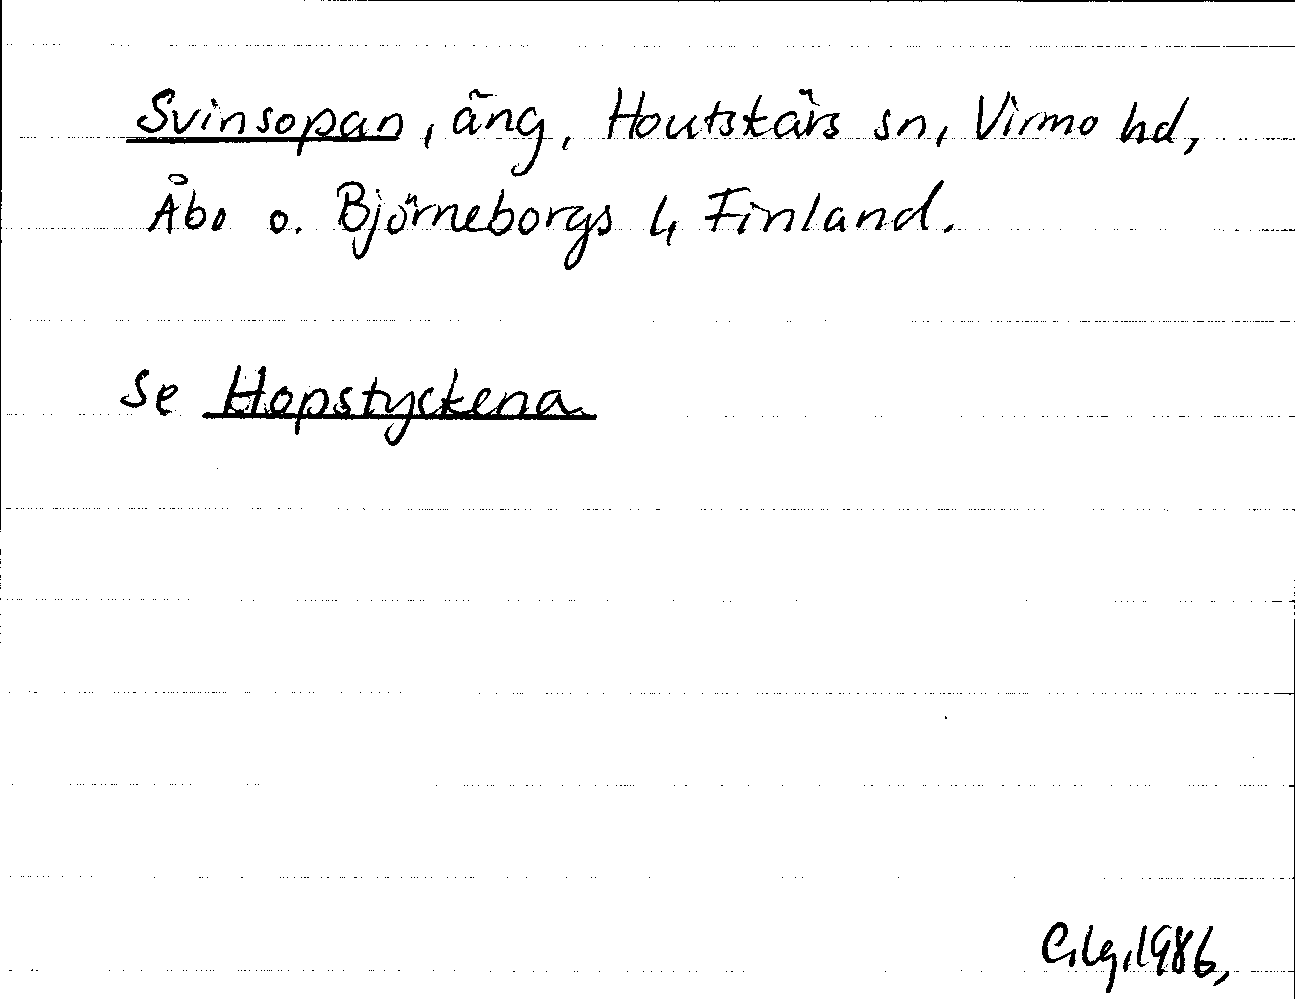 Svinsopan, äng, Houtskärs sn, Virmo hd,
Åbo o. Björneborgs l, Finland.
Se Hopstyckena
C.lg.1986,